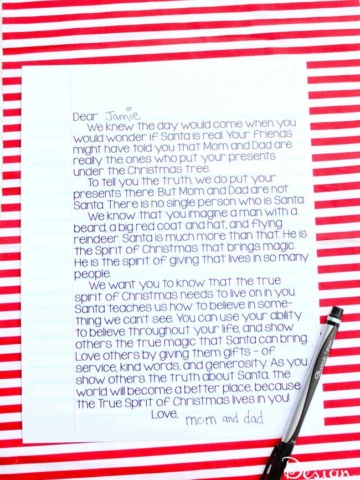 Dear Jamie
We knew the day would come when you
would wonder if Santa is real. Your friends
might have told you that Mom and Dad are
really the ones who put your presents
under the Christmas tree.
To tell you the truth, we do put your
presents there. But Mom and Dad are not
Santa. There is no single person who is Santa.
We know that you imagine a man with a
beard, a big red coat and hat, and flying
reindeer. Santa is much more than that. He is
the Spirit of Christmas that brings magic.
He is the spirit of giving that lives in so many
people.
We want you to know that the true
spirit of Christmas needs to live on in you.
Santa teaches us how to believe in some-
thing we can't see. You can use your ability
to believe throughout your life, and show
others the true magic that Santa can bring.
Love others by giving them gifts - of
service, kind words, and generosity. As you
show others the truth about Santa, the
world will become a better place, because
the True Spirit of Christmas lives in you!
Love, mom and dad
Design